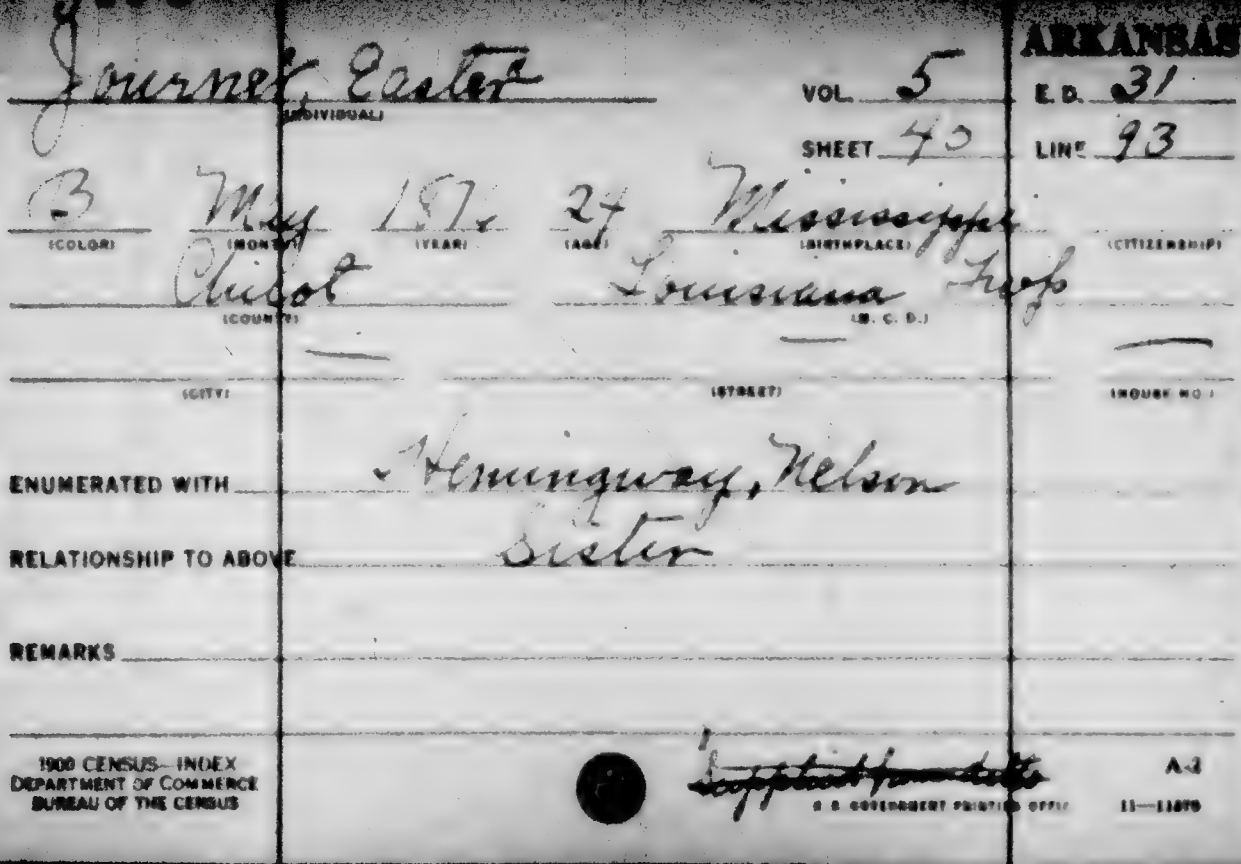 ARKANSAS
Journet, Easter
(INDIVIDUAL)
VOL. 5 E. D. 31
SHEET 40 LINE 93
B May 187 24 Mississippi
(COLOR) (MONTH) (YEAR) (AGE) (BIRTHPLACE) (CITIZENSHIP)
Chicot Louisiana
(COUNTY) (M. C. D.)
— — —
(CITY) (STREET) (HOUSE NO.)
ENUMERATED WITH Hemingway, Nelson
RELATIONSHIP TO ABOVE Sister
REMARKS
1900 CENSUS—INDEX A-2
DEPARTMENT OF COMMERCE
BUREAU OF THE CENSUS U. S. GOVERNMENT PRINTING OFFICE 11—11870